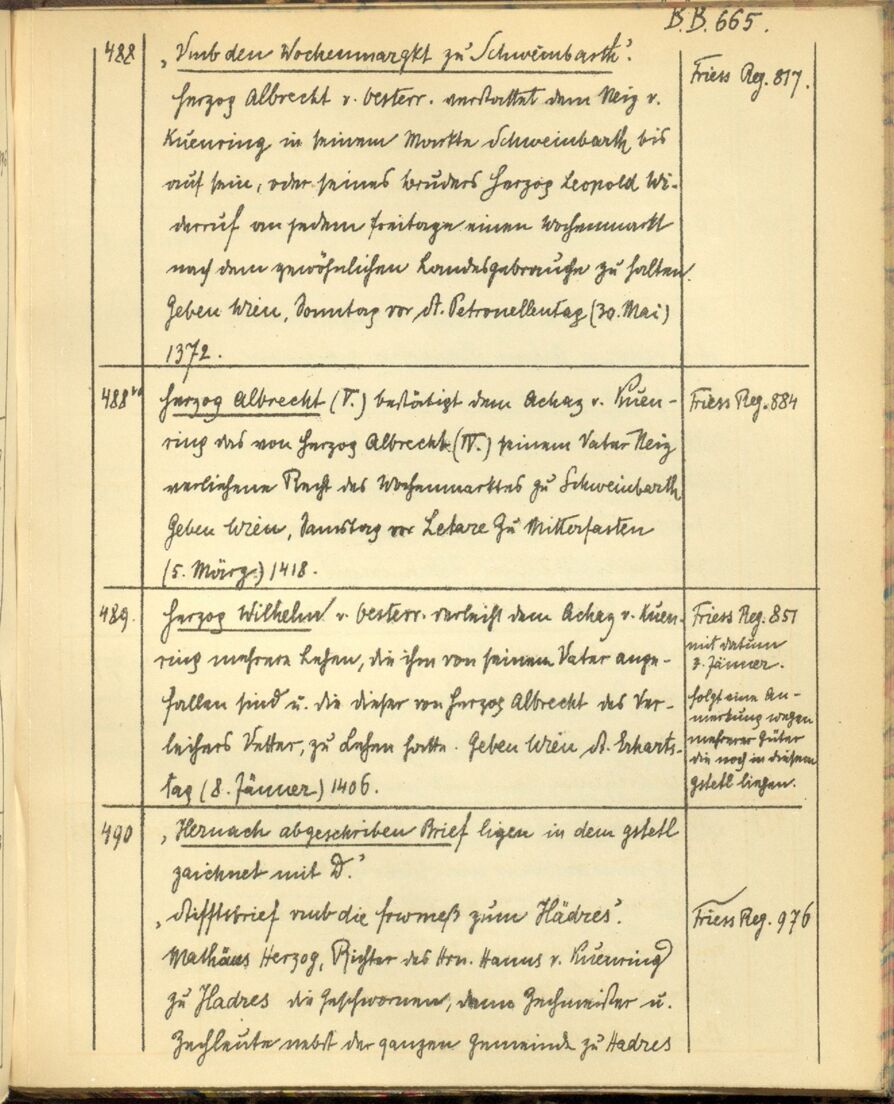 B.B. 665.
488 „Vmb den Wochenmargkt zu Schweinbarth".
Friess Reg. 817.
Herzog Albrecht v. Oesterr. verstattet dem Neiz v.
Kuenring in seinem Markte Schweinbarth bis
auf sein, oder seines Bruders Herzog Leopold Wi-
derruf an jedem Freitage einen Wochenmarkt
nach dem gewöhnlichen Landesgebrauche zu halten.
Geben Wien, Sonntag vor St. Petronellentag (30. Mai)
1372.
488 Herzog Albrecht (V.) bestätigt dem Achaz v. Kuen-
Friess Reg. 884
ring das von Herzog Albrecht (IV.) seinem Vater Neiz
verliehene Recht des Wochenmarktes zu Schweinbarth
Geben Wien, Samstag vor Letare zu Mitterfasten
(5. März) 1418.
489. Herzog Wilhelm v. Oesterr. verleiht dem Achaz v. Kuen-
ring mehrere Lehen, die ihm von seinem Vater ange-
fallen sind u. die dieser von Herzog Albrecht des Ver-
leihers Vetter, zu Lehen hatte. Geben Wien St. Erharts-
tag (8. Jänner) 1406.
Friess Reg. 851
mit datum
3. Jänner.
folgt eine An-
merkung wegen
mehrerer Güter
die noch in diesem
gstetl liegen.
490 „Hernach abgeschriben Brief ligen in dem gstetl
zaichnet mit D."
„Stifftsbrief vmb die frwmeß zum Hädres".
Friess Reg. 976
Mathäus Herzog, Richter des Hrn. Hanns v. Kuenring
zu Hadres die Geschwornen, dann Zechmeister u.
Zechleute nebst der ganzen Gemeinde zu Hadres